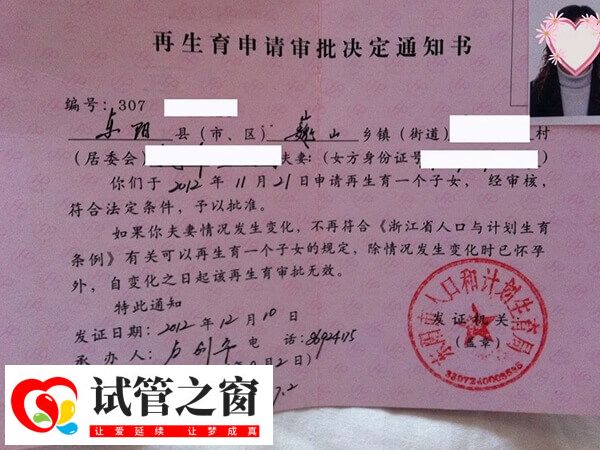 再生育申请审批决定通知书
编号：307
东阳 县（市、区） 巍山 乡镇（街道） 村
（居委会） 夫妻：（女方身份证号 ）
你们于2012年11月21日申请再生育一个子女，经审核，
符合法定条件，予以批准。
如果你夫妻情况发生变化，不再符合《浙江省人口与计划生育
条例》有关可以再生育一个子女的规定，除情况发生变化时已怀孕
外，自变化之日起该再生育审批无效。
特此通知
发证机关
发证日期：2012年12月10日
（盖章）
承办人： 电话：
东阳市人口和计划生育局
试管之窗
让爱延续 让梦成真